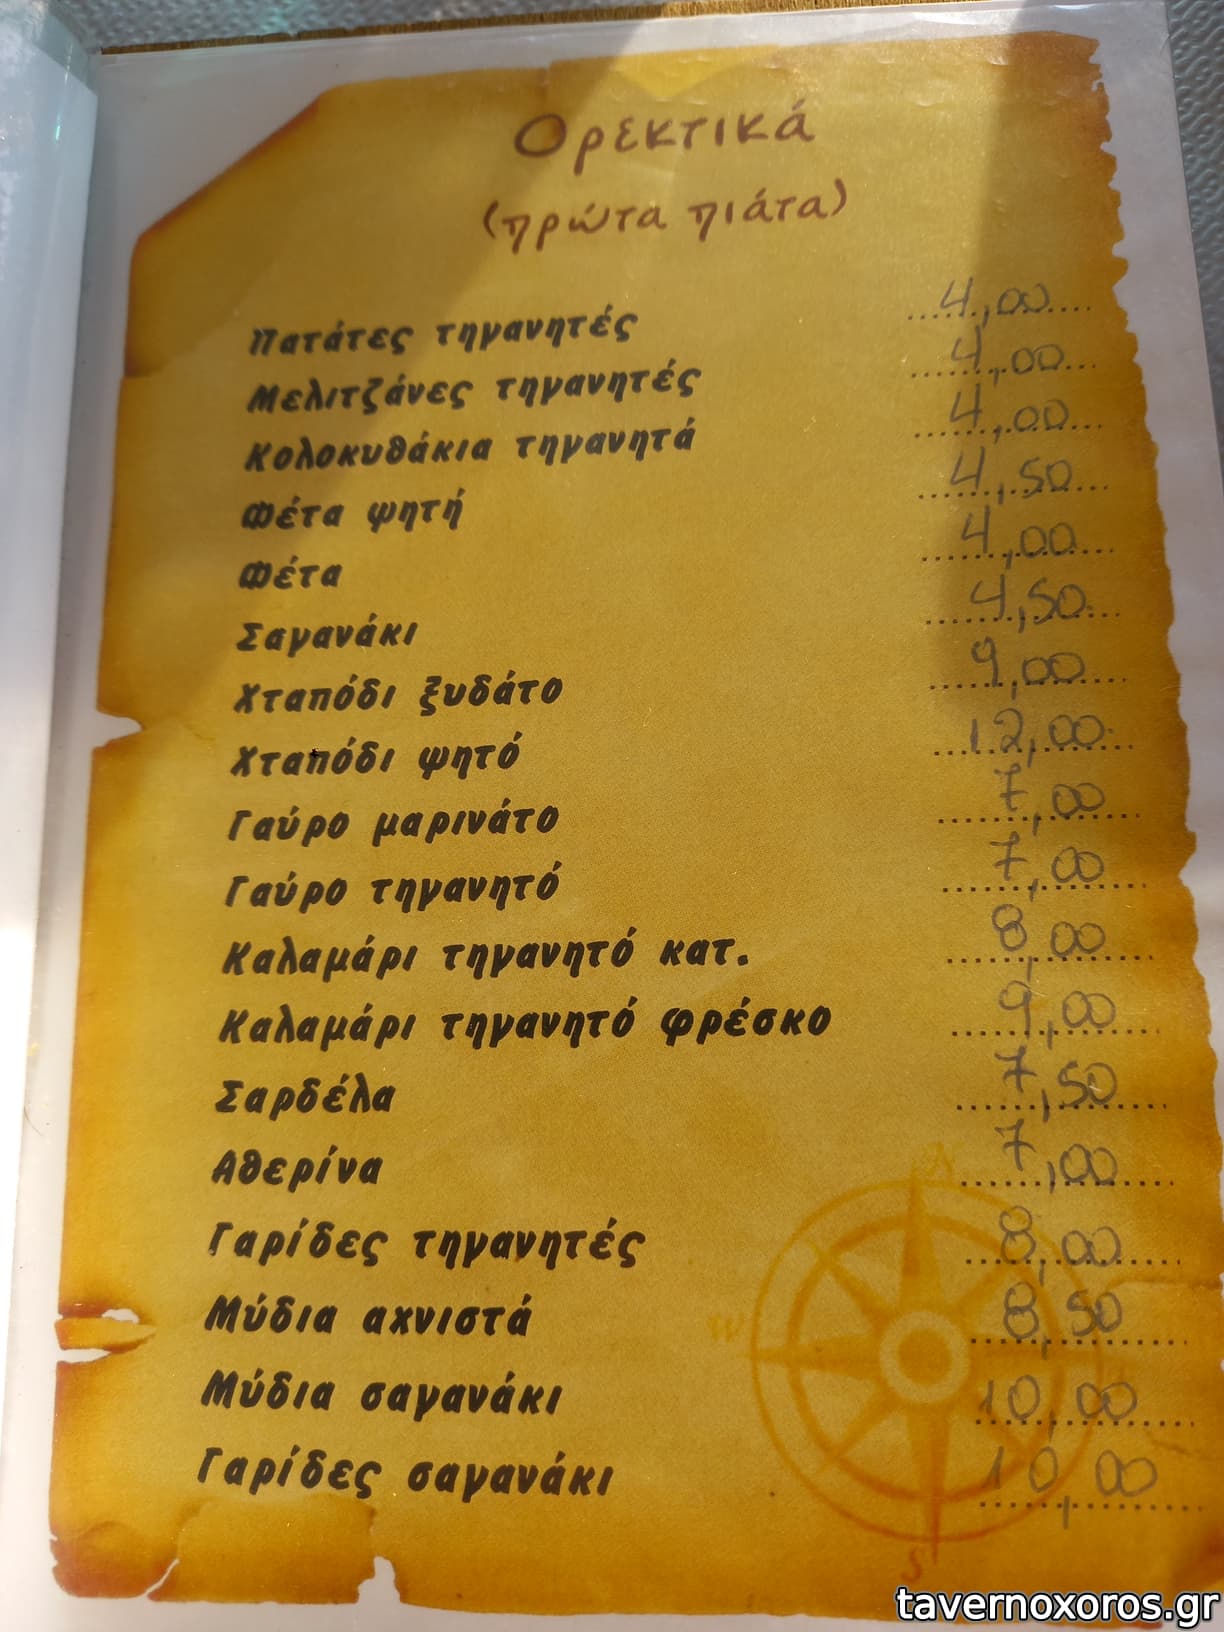 Ορεκτικά
(πρώτα πιάτα)
Πατάτες τηγανητές ...4,00...
Μελιτζάνες τηγανητές ...4,00...
Κολοκυθάκια τηγανητά ...4,00...
Φέτα ψητή ...4,50...
Φέτα ...4,00...
Σαγανάκι ...4,50...
Χταπόδι ξυδάτο ...9,00...
Χταπόδι ψητό ...12,00...
Γαύρο μαρινάτο ...7,00...
Γαύρο τηγανητό ...7,00...
Καλαμάρι τηγανητό κατ. ...8,00...
Καλαμάρι τηγανητό φρέσκο ...9,00...
Σαρδέλα ...7,50...
Αθερίνα ...7,00...
Γαρίδες τηγανητές ...8,00...
Μύδια αχνιστά ...8,50...
Μύδια σαγανάκι ...10,00...
Γαρίδες σαγανάκι ...10,00...
N
W
S
tavernoxoros.gr